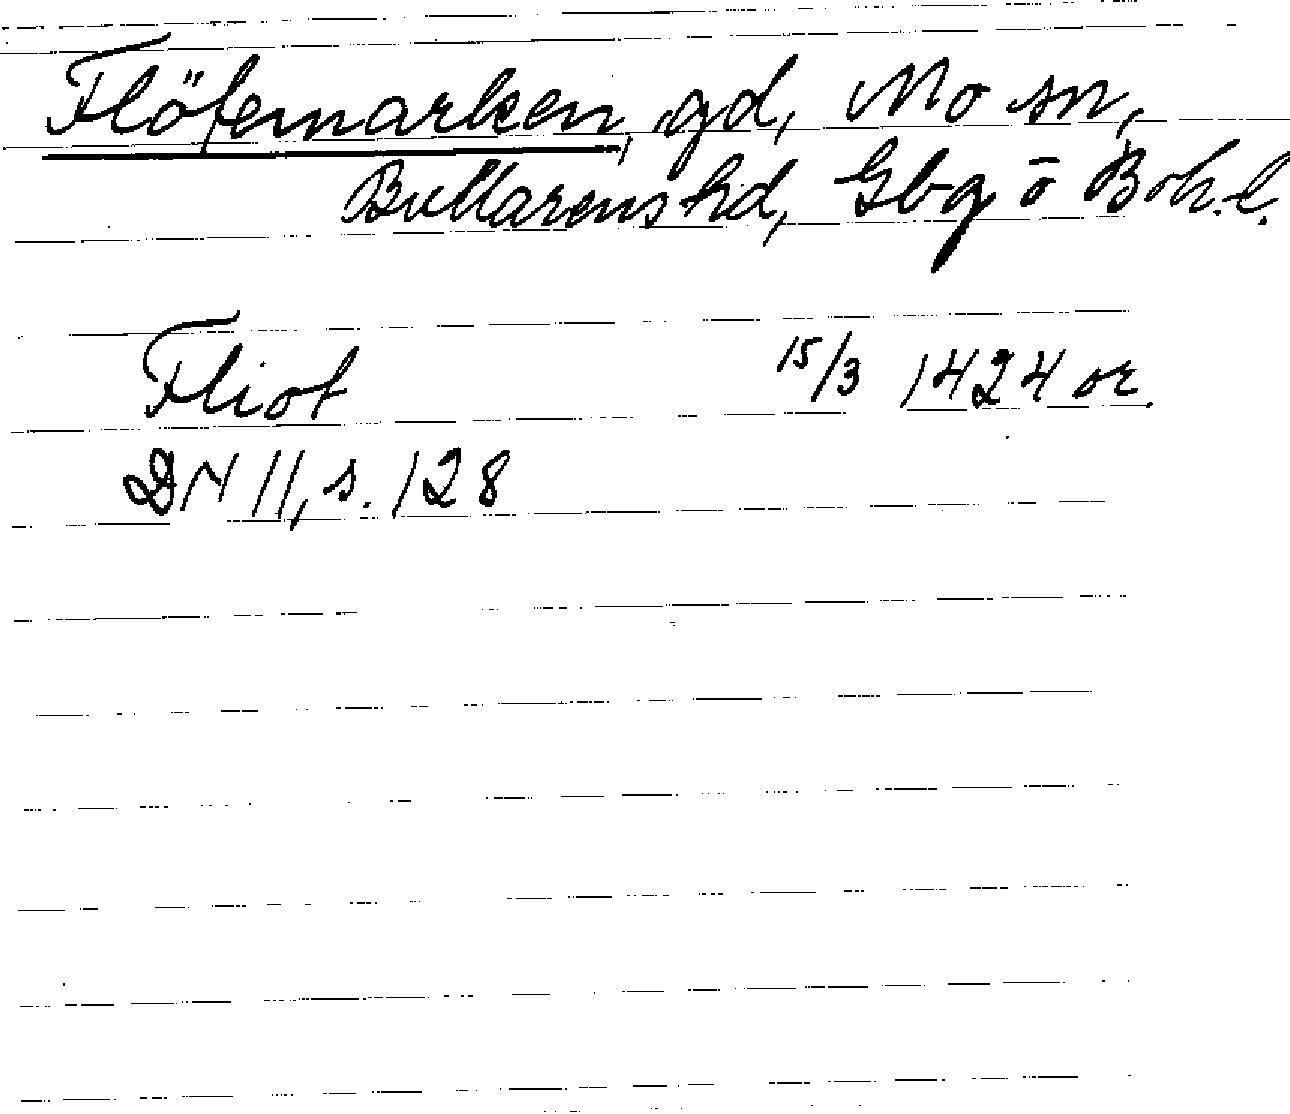 Flötemarken, gd, Mo sn,
Bullarens hd, Gbg o Boh. l.
Fliot 15/3 1424 or.
DN II, s. 128